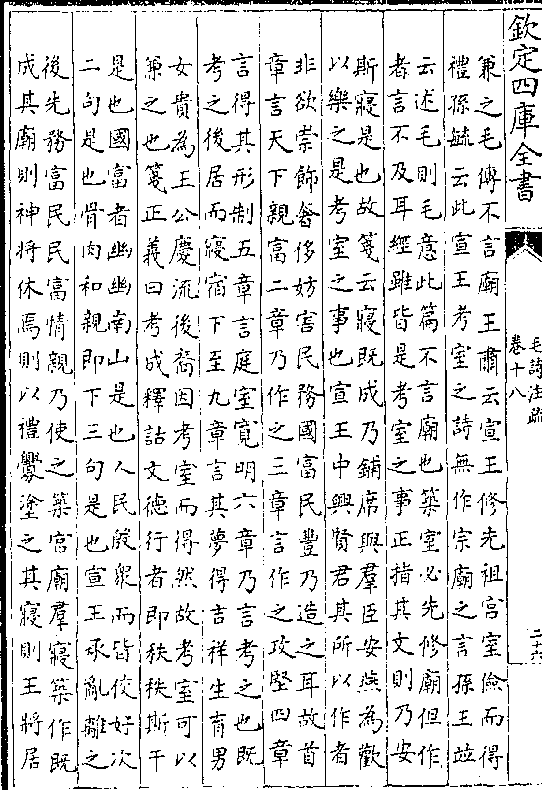 欽定四庫全書
毛詩注疏
卷十八
二十六
兼之毛傳不言廟王肅云宣王修先祖宫室儉而得
禮孫毓云此宣王考室之詩無作宗廟之言孫王並
云述毛則毛意此篇不言廟也築室必先修廟但作
者言不及耳經雖皆是考室之事正指其文則乃安
斯寢是也故箋云寢既成乃鋪席與羣臣安燕為歡
以樂之是考室之事也宣王中興賢君其所以作者
非欲崇飾奢侈妨害民務國富民豐乃造之耳故首
章言天下親富二章乃作之三章言作之攻堅四章
言得其形制五章言庭室寛明六章乃言考之也既
考之後居而寢宿下至九章言其夢得吉祥生育男
女貴為王公慶流後裔因考室而得然故考室可以
兼之也箋正義曰考成釋詁文德行者即秩秩斯干
是也國富者幽幽南山是也人民殷衆而皆佼好次
二句是也骨肉和親即下三句是也宣王承亂離之
後先務富民民富情親乃使之築宫廟羣寢築作既
成其廟則神將休焉則以禮釁塗之其寢則王將居